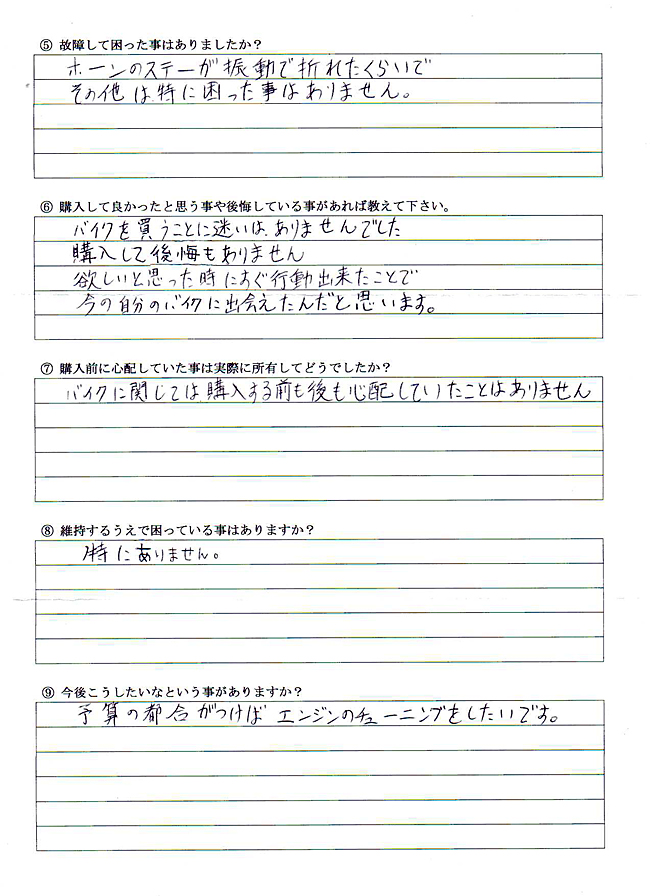 ⑤ 故障して困った事はありましたか？
ホーンのステーが振動で折れたくらいで
その他は特に困った事はありません。
⑥ 購入して良かったと思う事や後悔している事があれば教えて下さい。
バイクを買うことに迷いはありませんでした
購入して後悔もありません
欲しいと思った時にすぐ行動出来たことで
今の自分のバイクに出会えたんだと思います。
⑦ 購入前に心配していた事は実際に所有してどうでしたか？
バイクに関しては購入する前も後も心配していたことはありません
⑧ 維持するうえで困っている事はありますか？
特にありません。
⑨ 今後こうしたいなという事がありますか？
予算の都合がつけばエンジンのチューニングをしたいです。